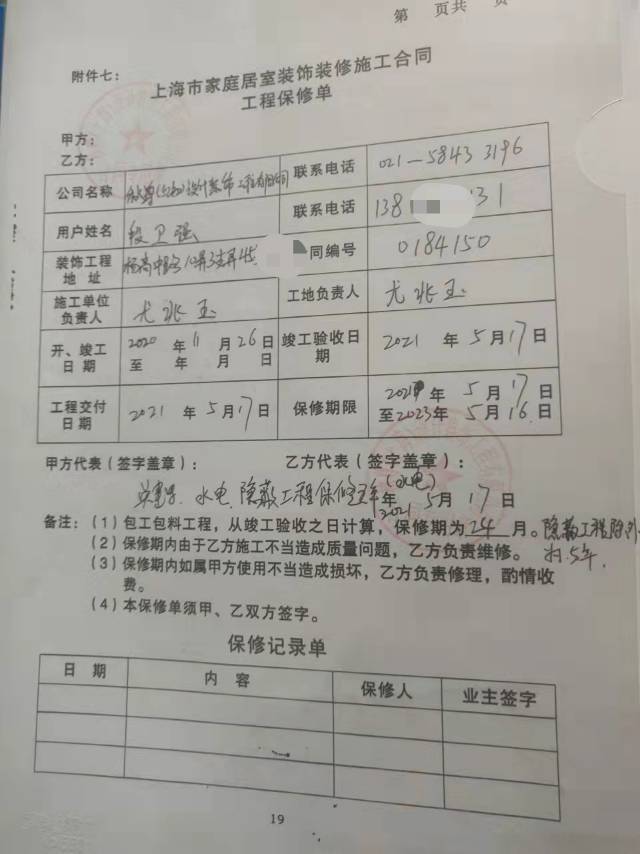 第 页共 页
附件七：
上海市家庭居室装饰装修施工合同
工程保修单
甲方：
乙方：
公司名称 设计装饰工程有限公司 联系电话 021-58433196
用户姓名 段卫强 联系电话 138 31
装饰工程地址 杨高中路 弄 支弄45 同编号 0184150
施工单位负责人 尤兆玉 工地负责人 尤兆玉
开、竣工日期 2020年11月26日至 年 月 日 竣工验收日期 2021年5月17日
工程交付日期 2021年5月17日 保修期限 2021年5月17日至2023年5月16日
甲方代表（签字盖章）： 乙方代表（签字盖章）：
水电隐蔽工程保修 年（水电） 2021年5月17日
备注：（1）包工包料工程，从竣工验收之日计算，保修期为24月。隐蔽工程除外
（2）保修期内由于乙方施工不当造成质量问题，乙方负责维修。 为5年．
（3）保修期内如属甲方使用不当造成损坏，乙方负责修理，酌情收
费。
（4）本保修单须甲、乙双方签字。
保修记录单
日期 内容 保修人 业主签字
19